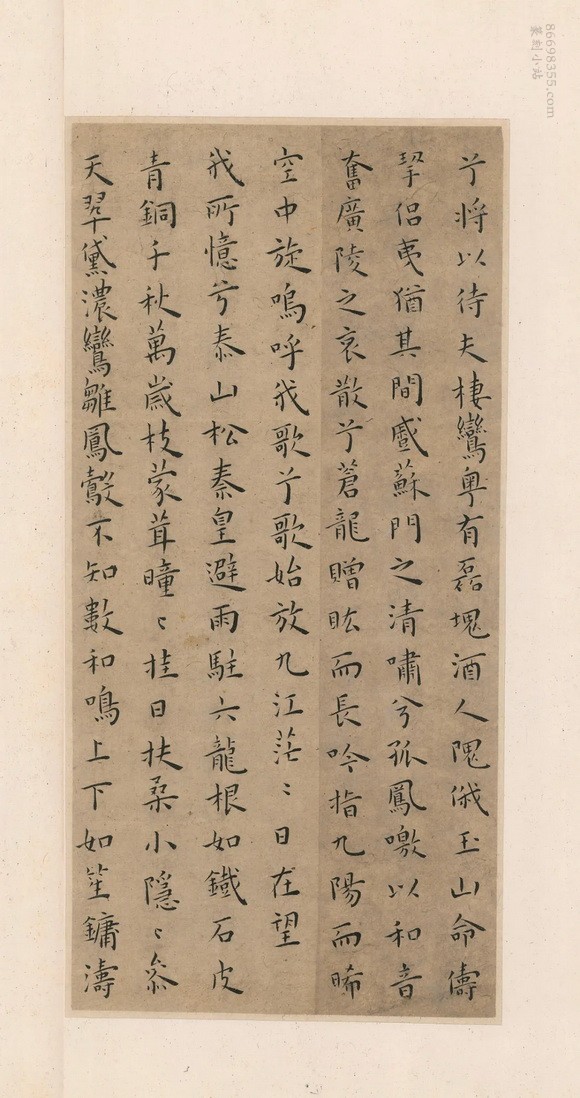 兮將以待夫棲鸞粵有磊塊酒人隗俄玉山命儔
挐侣夷猶其間感蘇門之清嘯兮孤鳳噭以和音
奮廣陵之哀散兮蒼龍瞪眩而長吟指九陽而晞
空中旋嗚呼我歌兮歌始放九江茫〻日在望
我所憶兮泰山松秦皇避雨駐六龍根如鐵石皮
青銅千秋萬歲枝蒙茸曈〻挂日扶桑小隱〻參
天翠黛濃鸞雛鳳鷇不知數和鳴上下如笙鏞濤
86698355.com
篆刻小站